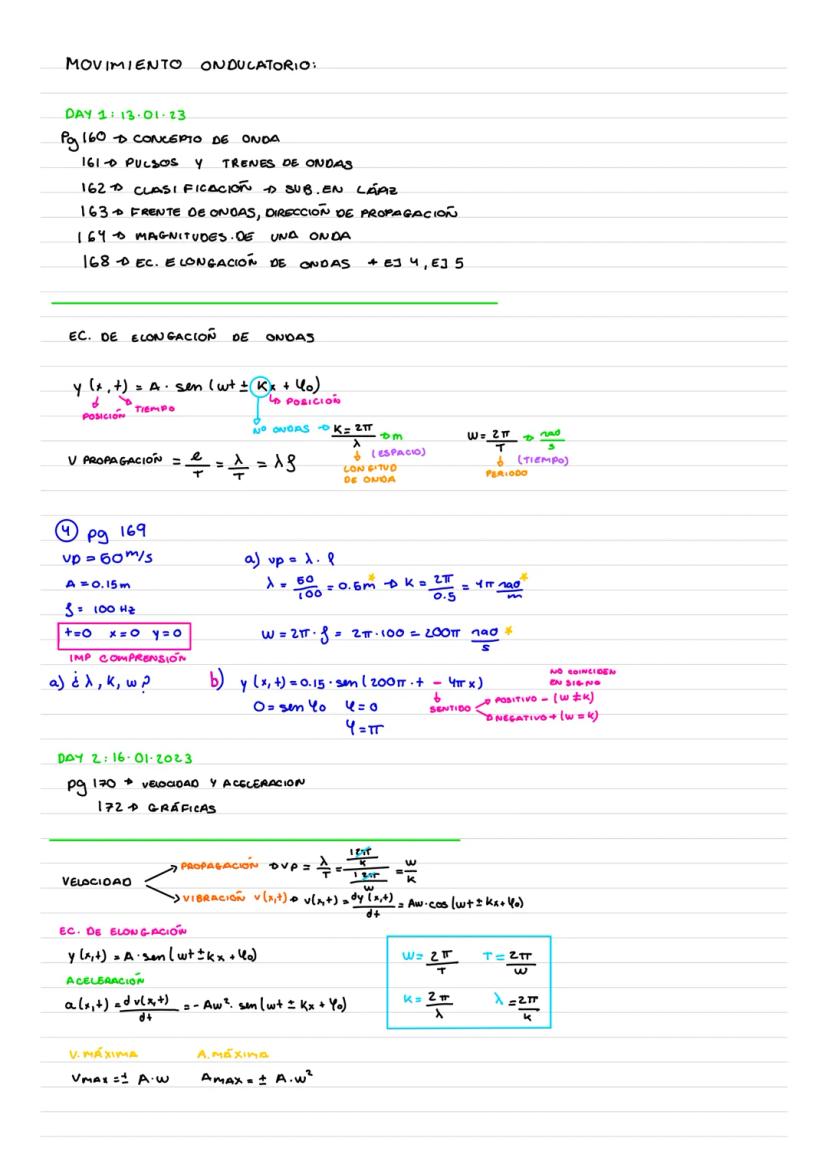 MOVIMIENTO ONDULATORIO:
DAY 1: 13·01·23
Pg 160 → CONCEPTO DE ONDA
161 → PULSOS Y TRENES DE ONDAS
162 → CLASIFICACIÓN → SUB. EN LÁPIZ
163 → FRENTE DE ONDAS, DIRECCIÓN DE PROPAGACIÓN
164 → MAGNITUDES DE UNA ONDA
168 → EC. ELONGACIÓN DE ONDAS + EJ 4, EJ 5
EC. DE ELONGACIÓN DE ONDAS
y (x, t) = A · sen (wt ± Kx + φ0)
POSICIÓN TIEMPO POSICIÓN
Nº ONDAS → K = 2π/λ → m (ESPACIO) LONGITUD DE ONDA
W = 2π/T → rad/s (TIEMPO) PERIODO
V PROPAGACIÓN = e/T = λ/T = λf
4 pg 169
vp = 50 m/s
A = 0.15 m
f = 100 Hz
t=0 x=0 y=0
IMP COMPRENSIÓN
a) ¿λ, K, w?
a) vp = λ · f
λ = 50/100 = 0.5m* → K = 2π/0.5 = 4π rad/m*
W = 2π · f = 2π · 100 = 200π rad/s*
b) y (x,t) = 0.15 · sen (200π · t − 4π x)
0 = sen φ0 φ = 0
φ = π
SENTIDO
NO COINCIDEN EN SIGNO
POSITIVO − (w ± K)
NEGATIVO + (w = K)
DAY 2: 16·01·2023
pg 170 → VELOCIDAD Y ACELERACION
172 → GRÁFICAS
VELOCIDAD
PROPAGACIÓN → vp = λ/T = (2π/K)/(2π/w) = w/K
VIBRACIÓN v(x,t) → v(x,t) = dy(x,t)/dt = Aw·cos (wt ± Kx + φ0)
EC. DE ELONGACIÓN
y (x,t) = A · sen (wt ± Kx + φ0)
ACELERACIÓN
a (x,t) = dv(x,t)/dt = −Aw² · sen (wt ± Kx + φ0)
W = 2π/T T = 2π/W
K = 2π/λ λ = 2π/K
V. MÁXIMA A. MÁXIMA
VMAX = ± A·W AMAX = ± A·W²